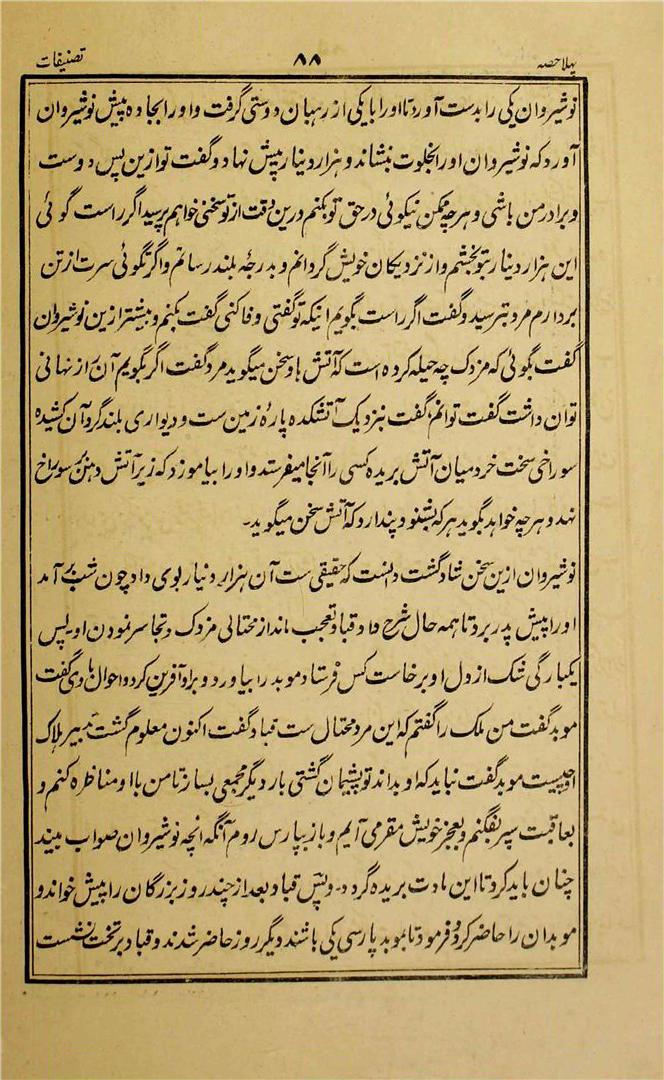 پہلا حصہ ۸۸ تصنیفات
نوشیروان یکی را بدست آورد تا اورا با یکی از رہبان دوستی گرفت و اورا بجادہ پیش نوشیروان
آورد کہ نوشیروان اورا بخلوت بنشاند و ہزار دینار پیش نہاد و گفت تو ازین پس دوست
و برادر من باشی و ہر چہ ممکن نیکوئی در حق تو بکنم درین وقت از تو سخنی خواہم پرسید اگر راست گوئی
این ہزار دینار بتو بخشم و از نزدیکان خویش گردانم و بدرجۂ بلند رسانم و اگر نگوئی سرت از تن
بردارم مرد بترسید و گفت اگر راست بگویم اینکہ تو گفتی وفا کنی گفت بکنم و بیشتر ازین نوشیروان
گفت بگوئی کہ مزدک چہ حیلہ کردہ است کہ آتش باو سخن میگوید مرد گفت اگر بگویم آن راز نہانی
توان داشت گفت توانم، گفت بنزدیک آتشکدہ پارۂ زمین ست و دیواری بلند گرد آن کشیدہ
سوراخی سخت خرد میان آتش بریدہ کسی را آنجا میفرستد و اورا بیاموزد کہ زیر آتش دہن بر سوراخ
نہد و ہر چہ خواہد بگوید ہر کہ بشنود پندارد کہ آتش سخن میگوید۔
نوشیروان ازین سخن شاد گشت دانست کہ حقیقی ست آن ہزار دینار بوی داد چون شب بر آمد
اورا پیش پدر برد تا ہمہ حال شرح داد قباد تعجب ماند از محتالی مزدک و تجاسر نمودن او۔ پس
یکبارگی شک از دل او برخاست کس فرستاد موبد را بیاورد و براو آفرین کرد و احوال باوی گفت
موبد گفت من ملک را گفتم کہ این مرد محتال ست قباد گفت اکنون معلوم گشت تدبیر ہلاک
او چیست موبد گفت نباید کہ او بداند تو پشیمان گشتی بار دیگر مجمعی بساز تا من با او مناظرہ کنم و
بعاقبت سپر بفگنم و بعجز خویش مقر می آیم و باز بپارس روم آنگہ انچہ نوشیروان صواب بیند
چنان باید کرد تا این مادت بریدہ گردد۔ و پس قباد بعد از چند روز بزرگان را پیش خواند و
موبدان را حاضر کرد و فرمود تا بموبد پارسی یکی باشند و دیگر روز حاضر شدند و قباد بر تخت نشست